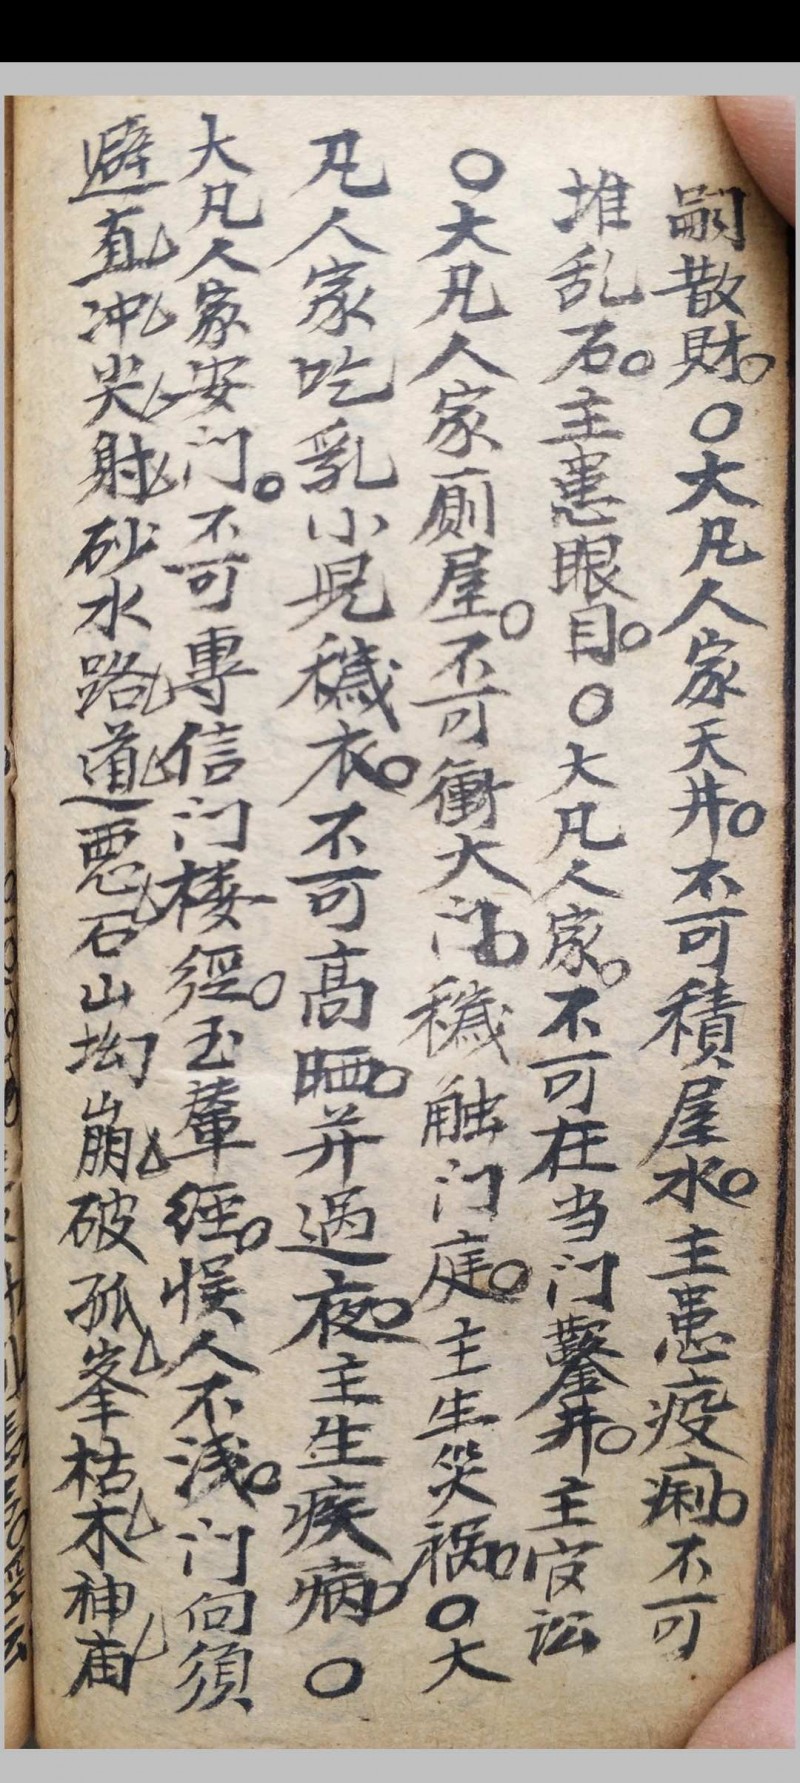 嗣散財。〇大凡人家天井。不可積屋水。主患疫痢。不可
堆乱石。主患眼目。〇大凡人家。不可在当门鑿井。主官訟
〇大凡人家廁屋。不可衝大门。穢触门庭。主生災禍。〇大
凡人家吃乳小児穢衣。不可高晒。并過夜。主生疾病。〇
大凡人家安门。不可專信门楼經。玉輦經。悮人不浅。门向須
避直冲尖射砂水路道悪石山坳崩破孤峯枯木神庙